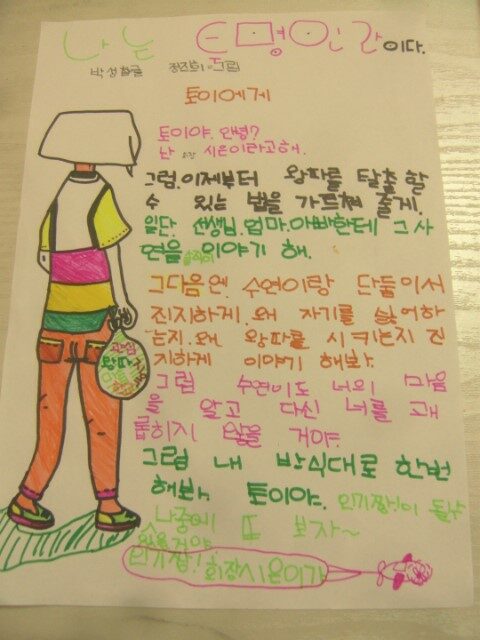 나는 투명인간이다.
박성철글 정진희그림
토이에게
토이야. 안녕?
난 회장 시은이라고해.
그럼. 이제부터 왕따를 탈출할
수 있는 법을 가르쳐 줄게.
일단. 선생님. 엄마. 아빠한테 그 사
연을 이야기 해.
그다음엔. 수연이랑 단둘이서
진지하게. 왜 자기를 싫어하
는지. 왜 왕따를 시키는지 진
지하게 이야기 해봐.
그럼 수연이도 너의 마음
을 알고 다신 너를 괴
롭히지 않을 거야.
그럼 내 방식대로 한번
해봐. 토이야. 인기짱이 될수
있을거야
나중에 또 보자~
인기짱! 회장시은이가
관심
왕따